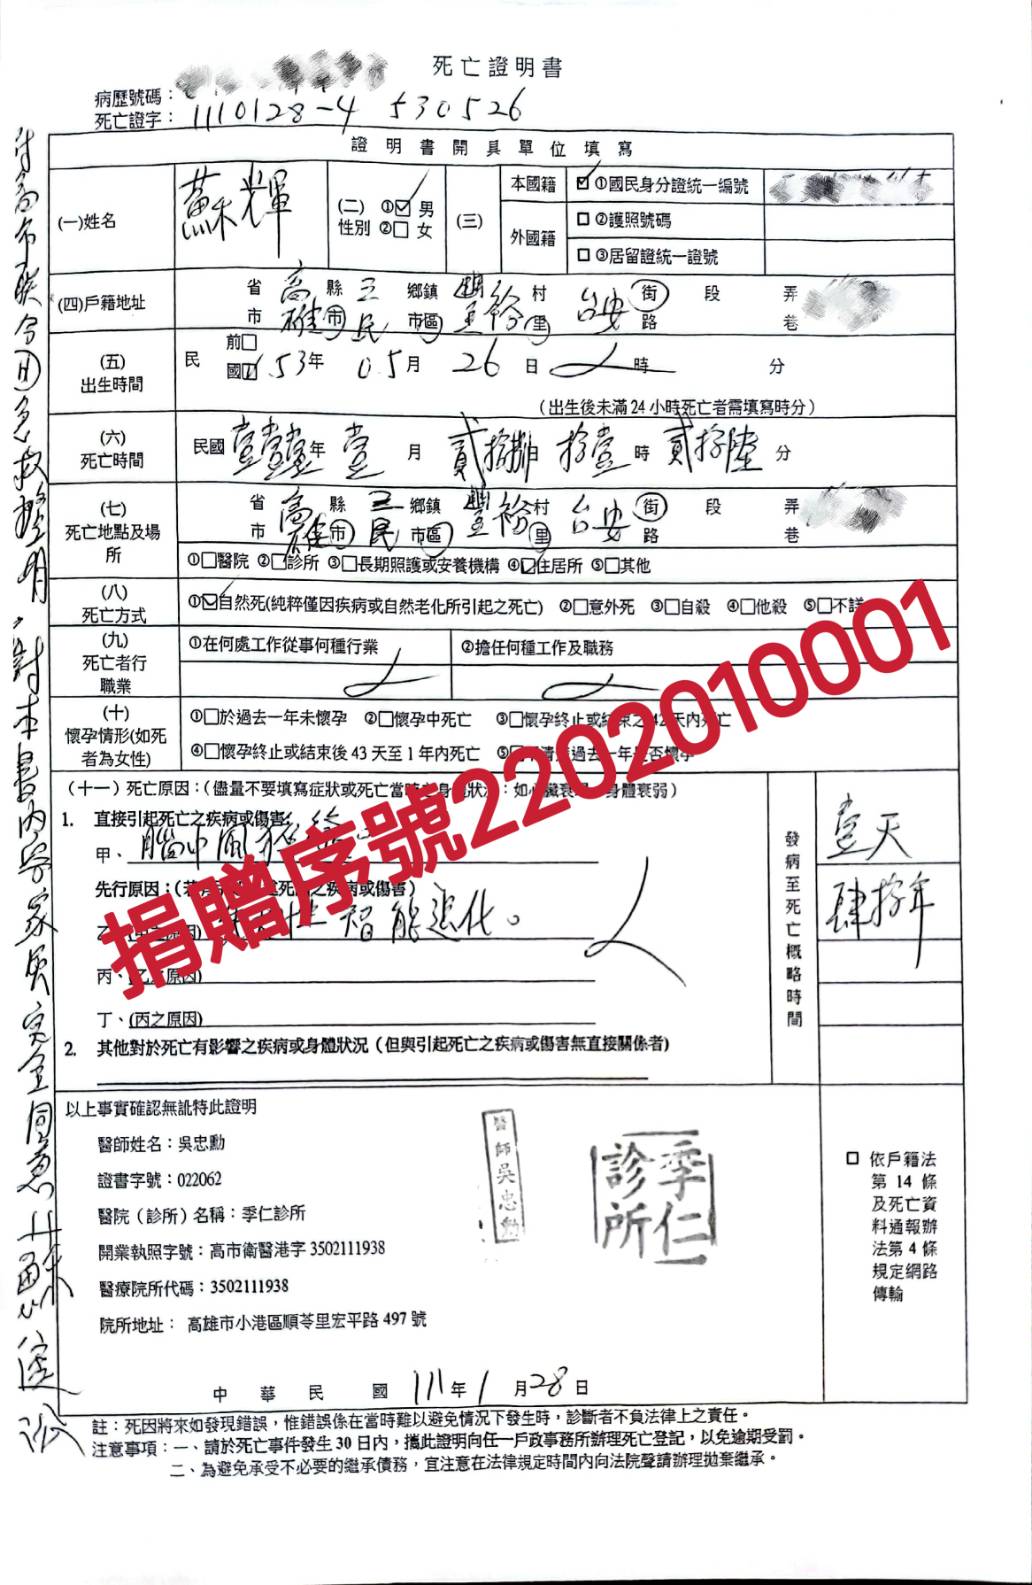 死亡證明書
病歷號碼：
死亡證字： 1110128-4 530526
證明書開具單位填寫
(一)姓名 蘇輝 (二)性別 ①☑男 ②□女 (三) 本國籍 ☑①國民身分證統一編號
外國籍 □②護照號碼
□③居留證統一證號
(四)戶籍地址 省市 高雄 縣市 三民 鄉鎮市區 豐裕 村里 台安 街路 段 弄巷
(五)出生時間 民 前□ 國☑ 53年 05月 26日 時 分
(出生後未滿24小時死亡者需填寫時分)
(六)死亡時間 民國 壹壹壹年 壹月 貳拾捌日 拾壹時 貳拾陸分
(七)死亡地點及場所 省市 高雄 縣市 三民 鄉鎮市區 豐裕 村里 台安 街路 段 弄巷
①□醫院 ②□診所 ③□長期照護或安養機構 ④☑住居所 ⑤□其他
(八)死亡方式 ①☑自然死(純粹僅因疾病或自然老化所引起之死亡) ②□意外死 ③□自殺 ④□他殺 ⑤□不詳
(九)死亡者行職業 ①在何處工作從事何種行業 ②擔任何種工作及職務
(十)懷孕情形(如死者為女性) ①□於過去一年未懷孕 ②□懷孕中死亡 ③□懷孕終止或結束之42天內死亡
④□懷孕終止或結束後 43 天至 1 年內死亡 ⑤□不清楚過去一年是否懷孕
捐贈序號2202010001
(十一) 死亡原因：(儘量不要填寫症狀或死亡當時之身體狀況：如心臟衰竭、身體衰弱)
1. 直接引起死亡之疾病或傷害：
甲、腦中風 壹天
先行原因：(若有
死亡之疾病或傷害)
乙、(甲之原因) 智能退化。 肆拾年
丙、(乙之原因)
丁、(丙之原因)
發病至死亡概略時間
2. 其他對於死亡有影響之疾病或身體狀況 (但與引起死亡之疾病或傷害無直接關係者)
以上事實確認無訛特此證明
醫師姓名：吳忠勳
證書字號：022062
醫院（診所）名稱：季仁診所
開業執照字號：高市衛醫港字 3502111938
醫療院所代碼：3502111938
院所地址： 高雄市小港區順苓里宏平路 497 號
醫師吳忠勳
季仁診所
□ 依戶籍法第 14 條及死亡資料通報辦法第 4 條規定網路傳輸
中華民國 111年1月28日
註：死因將來如發現錯誤，惟錯誤係在當時難以避免情況下發生時，診斷者不負法律上之責任。
注意事項：一、請於死亡事件發生 30 日內，攜此證明向任一戶政事務所辦理死亡登記，以免逾期受罰。
二、為避免承受不必要的繼承債務，宜注意在法律規定時間內向法院聲請辦理拋棄繼承。